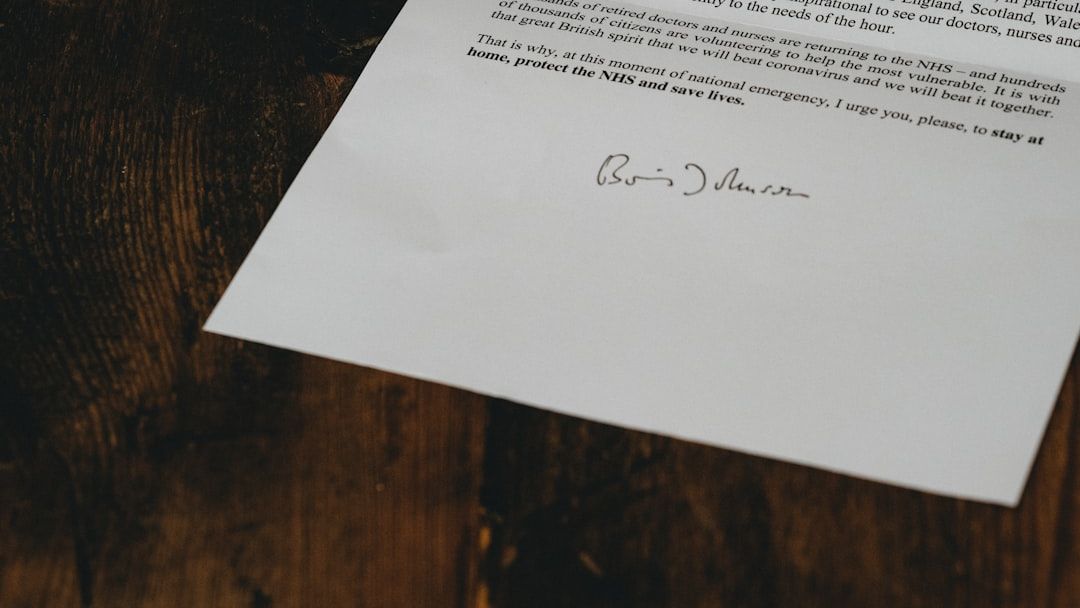 England, Scotland, Wale
to the needs of the hour.
inspirational to see our doctors, nurses and
of retired doctors and nurses are returning to the NHS – and hundreds
of thousands of citizens are volunteering to help the most vulnerable. It is with
that great British spirit that we will beat coronavirus and we will beat it together.
That is why, at this moment of national emergency, I urge you, please, to stay at
home, protect the NHS and save lives.
Boris Johnson